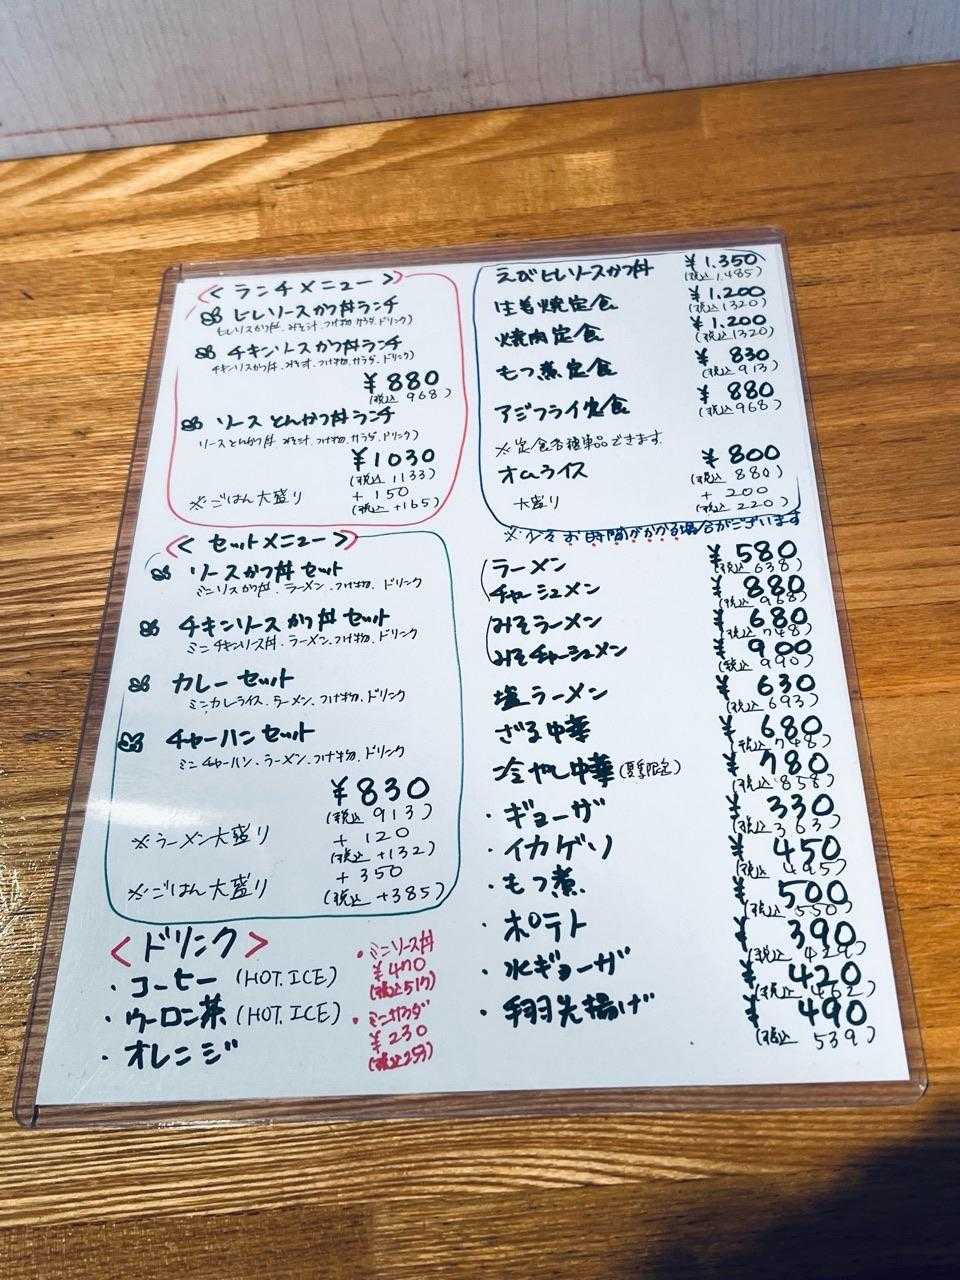 <ランチメニュー>
ヒレソースかつ丼ランチ
ヒレソースかつ丼、みそ汁、つけ物、サラダ、ドリンク)
チキンソースかつ丼ランチ
チキンソースかつ丼、みそ汁、つけ物、サラダ、ドリンク)
¥880
(税込 968)
ソースとんかつ丼ランチ
ソースとんかつ丼 みそ汁、つけ物、サラダ、ドリンク)
¥1030
(税込 1133)
※ごはん大盛り
+150
(税込 +165)
<セットメニュー>
ソースかつ丼セット
ミニソースかつ丼、ラーメン、つけ物、ドリンク
チキンソースかつ丼セット
ミニチキンソース丼、ラーメン、つけ物、ドリンク
カレーセット
ミニカレライス、ラーメン、つけ物、ドリンク
チャーハンセット
ミニチャーハン、ラーメン、つけ物、ドリンク
¥830
(税込 913)
※ラーメン大盛り
+120
(税込 +132)
+350
※ごはん大盛り
(税込 +385)
<ドリンク>
・コーヒー(HOT.ICE)
・ウーロン茶(HOT.ICE)
・オレンジ
・ミニソース丼
¥470
(税込517)
・ミニサラダ
¥230
(税込253)
えびヒレソースかつ丼 ¥1.350
(税込 1.485)
生姜焼定食 ¥1.200
(税込1320)
焼肉定食 ¥1.200
(税込1320)
もつ煮定食 ¥830
(税込 913)
アジフライ定食 ¥880
(税込968)
※定食各種単品できます
オムライス ¥800
(税込 880)
大盛り +200
(税込 220)
※少々お時間がかかる場合がございます
ラーメン ¥580
(税込 638)
チャーシュメン ¥880
(税込 968)
みそラーメン ¥680
(税込 748)
みそチャーシュメン ¥900
(税込 990)
塩ラーメン ¥630
(税込 693)
ざる中華 ¥680
(税込 748)
冷やし中華(夏季限定) ¥780
(税込 858)
・ギョーザ ¥330
(税込 363)
・イカゲソ ¥450
(税込 495)
・もつ煮 ¥500
(税込 550)
・ポテト ¥390
(税込 429)
・水ギョーザ ¥420
(税込 462)
・手羽先揚げ ¥490
(税込 539)